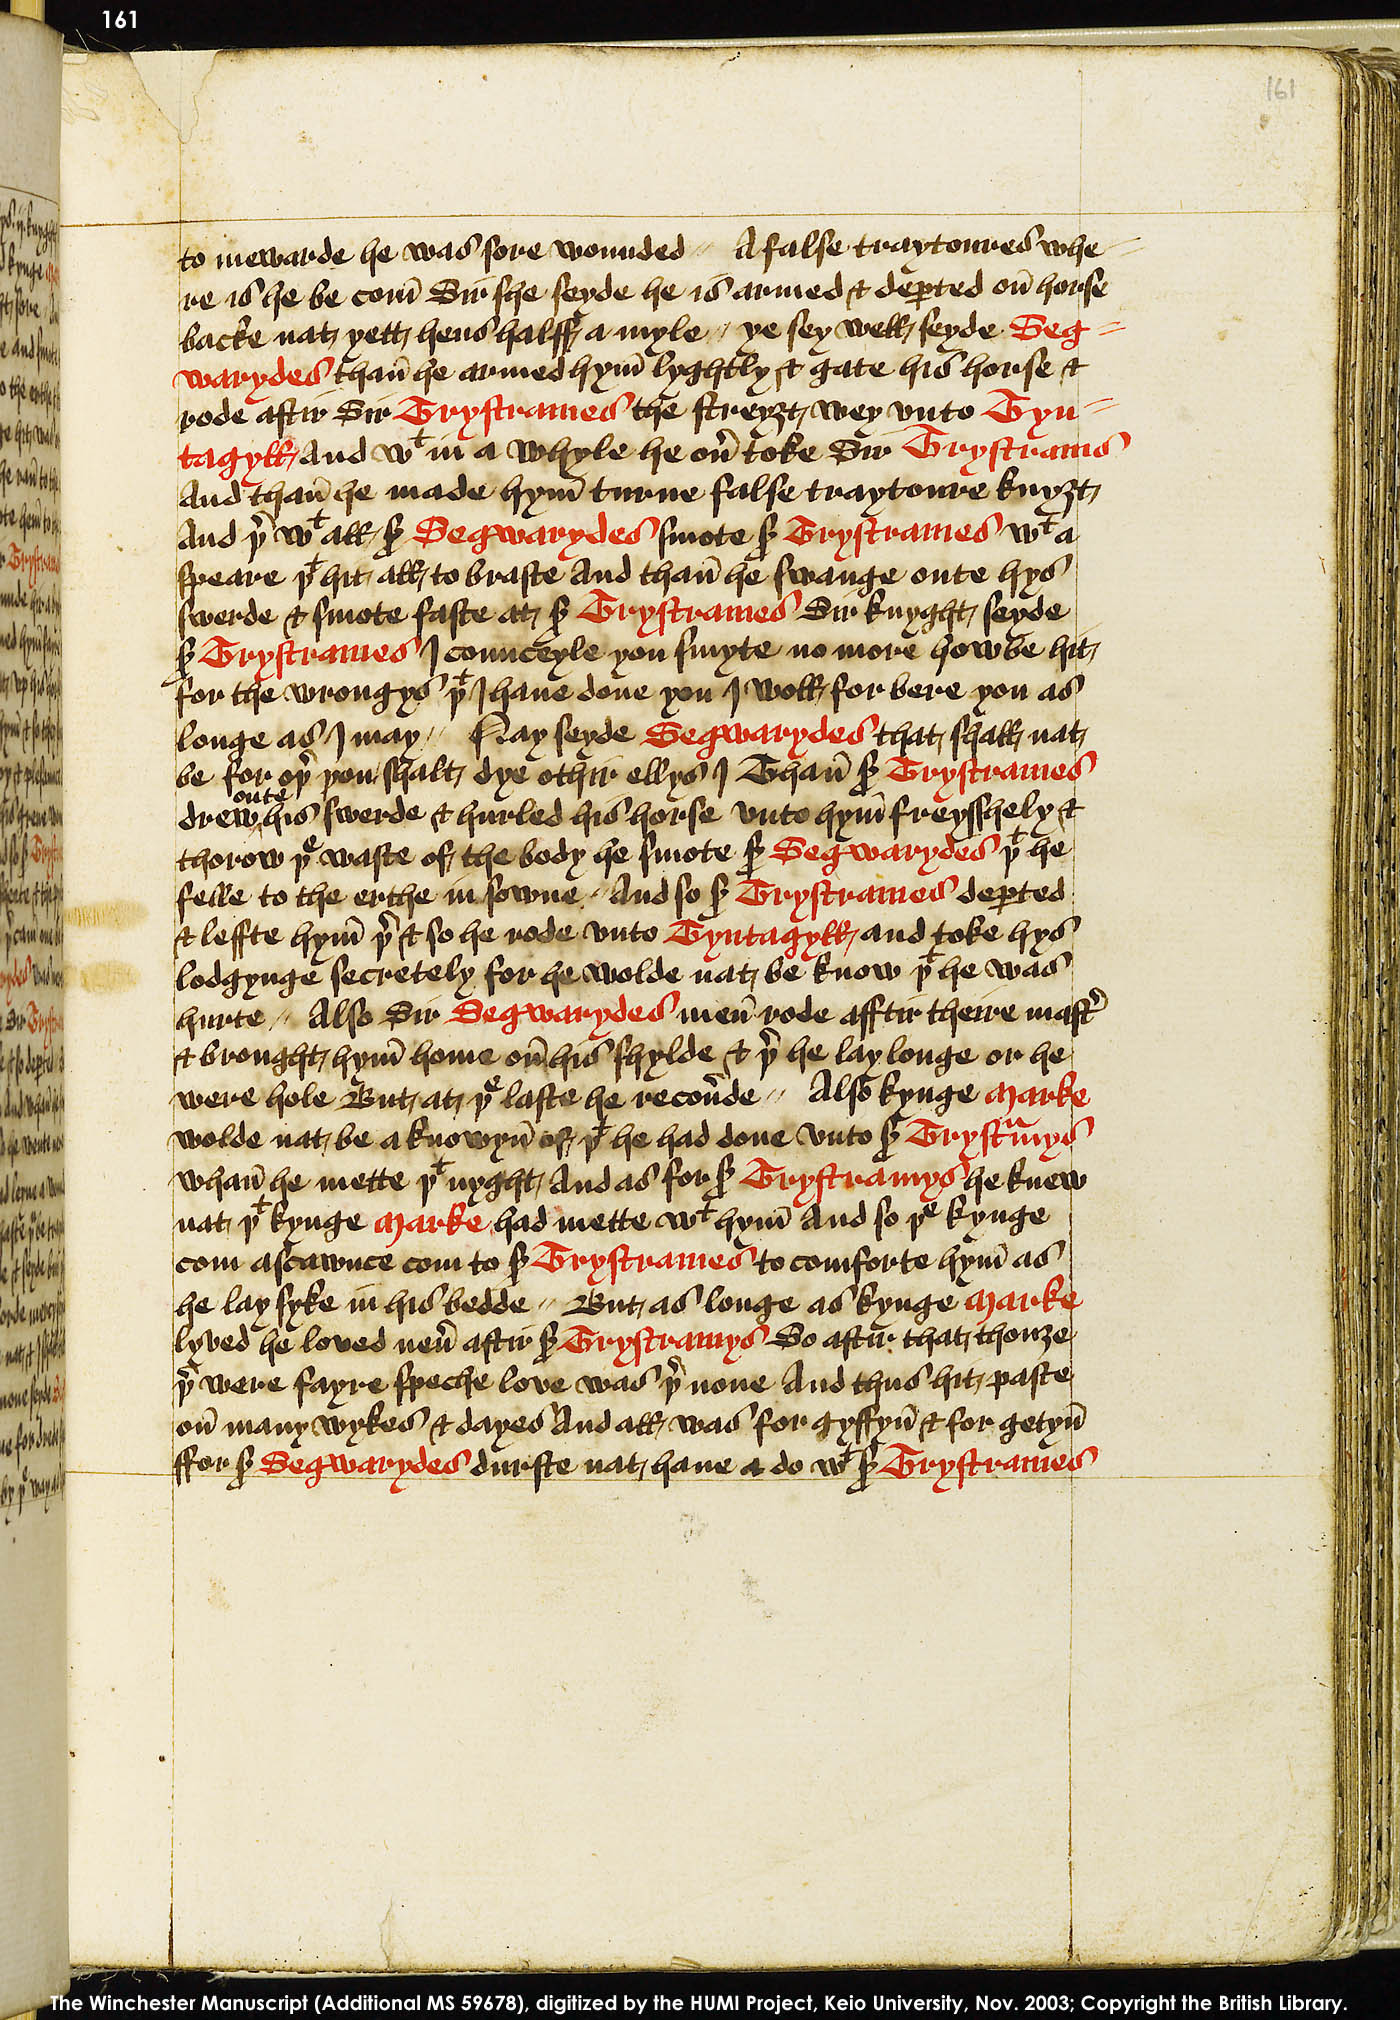 161
161
to mewarde he was sore wounded〃 A false traytoures whe=
re is he be com̄ Sir she seyde he is armed & dep̱ted on̄ horse
backe nat yett hens halff a myle〃 ye sey well seyde Seg=
warydes than̄ he armed hym̄ lyghtly & gate his horse &
rode aftir Sir Trystrames the streyȝt wey vnto Tyn=
tagyll And wᵗ in a whyle he ou̓ toke Sir Trystrams
And than̄ he made hym̄ turne false traytoure knyȝt
And þ̓ wᵗ all sẜ Segwarydes smote sẜ Trystrames wᵗ a
speare þᵗ hit all to braste And than̄ he swange oute hys
swerde & smote faste at sẜ Trystrames Sir knyght seyde
sẜ Trystrames I counceyle you smyte no more how be hit
for the wrongys þᵗ I haue done you I woll for bere you as
longe as I may〃 Nay seyde Segwarydes that shall nat
be for oþ̓ þou shalt dye othir ellys I Than̄ sẜ Trystrames
drew oute his swerde & hurled his horse vnto hym̄ freysshely &
thorow þᵉ waste of the body he smote sẜ Segwarydes þᵗ he
felle to the erthe in sowne〃 And so sẜ Trystrames dep̱ted
& leffte hym̄ þ̓ & so he rode vnto Tyntagyll and toke hys
lodgynge secretely for he wolde nat be know þᵗ he was
hurte〃 Also Sir Segwarydes men̄ rode afftir theire mast̓
& brought hym̄ home on̄ his shylde & þ̓ he lay longe or he
were hole But at þᵉ laste he recou̓de〃 Also kynge Marke
wolde nat be a knowyn̄ of þᵗ he had done vnto sẜ Trystᵃmys
whan̄ he mette þᵗ nyght And as for sẜ Trystramys he knew
nat þᵗ kynge Marke had mette wᵗ hym̄ And so þᵉ kynge
com ascawnce com to sẜ Trystrames to comforte hym̄ as
he lay syke in his bedde〃 But as longe as kynge Marke
lyved he loved neu̓ aftir sẜ Trystramys So aftir that thouȝe
þ̓ were fayre speche love was þ̓ none And thus hit paste
on̄ many wykes & dayes And all was for gyffyn̄ & for getyn̄
ffor sẜ Segwarydes durste nat haue a do wᵗ sẜ Trystrames
The Winchester Manuscript (Additional MS 59678), digitized by the HUMI Project, Keio University, Nov. 2003; Copyright the British Library.